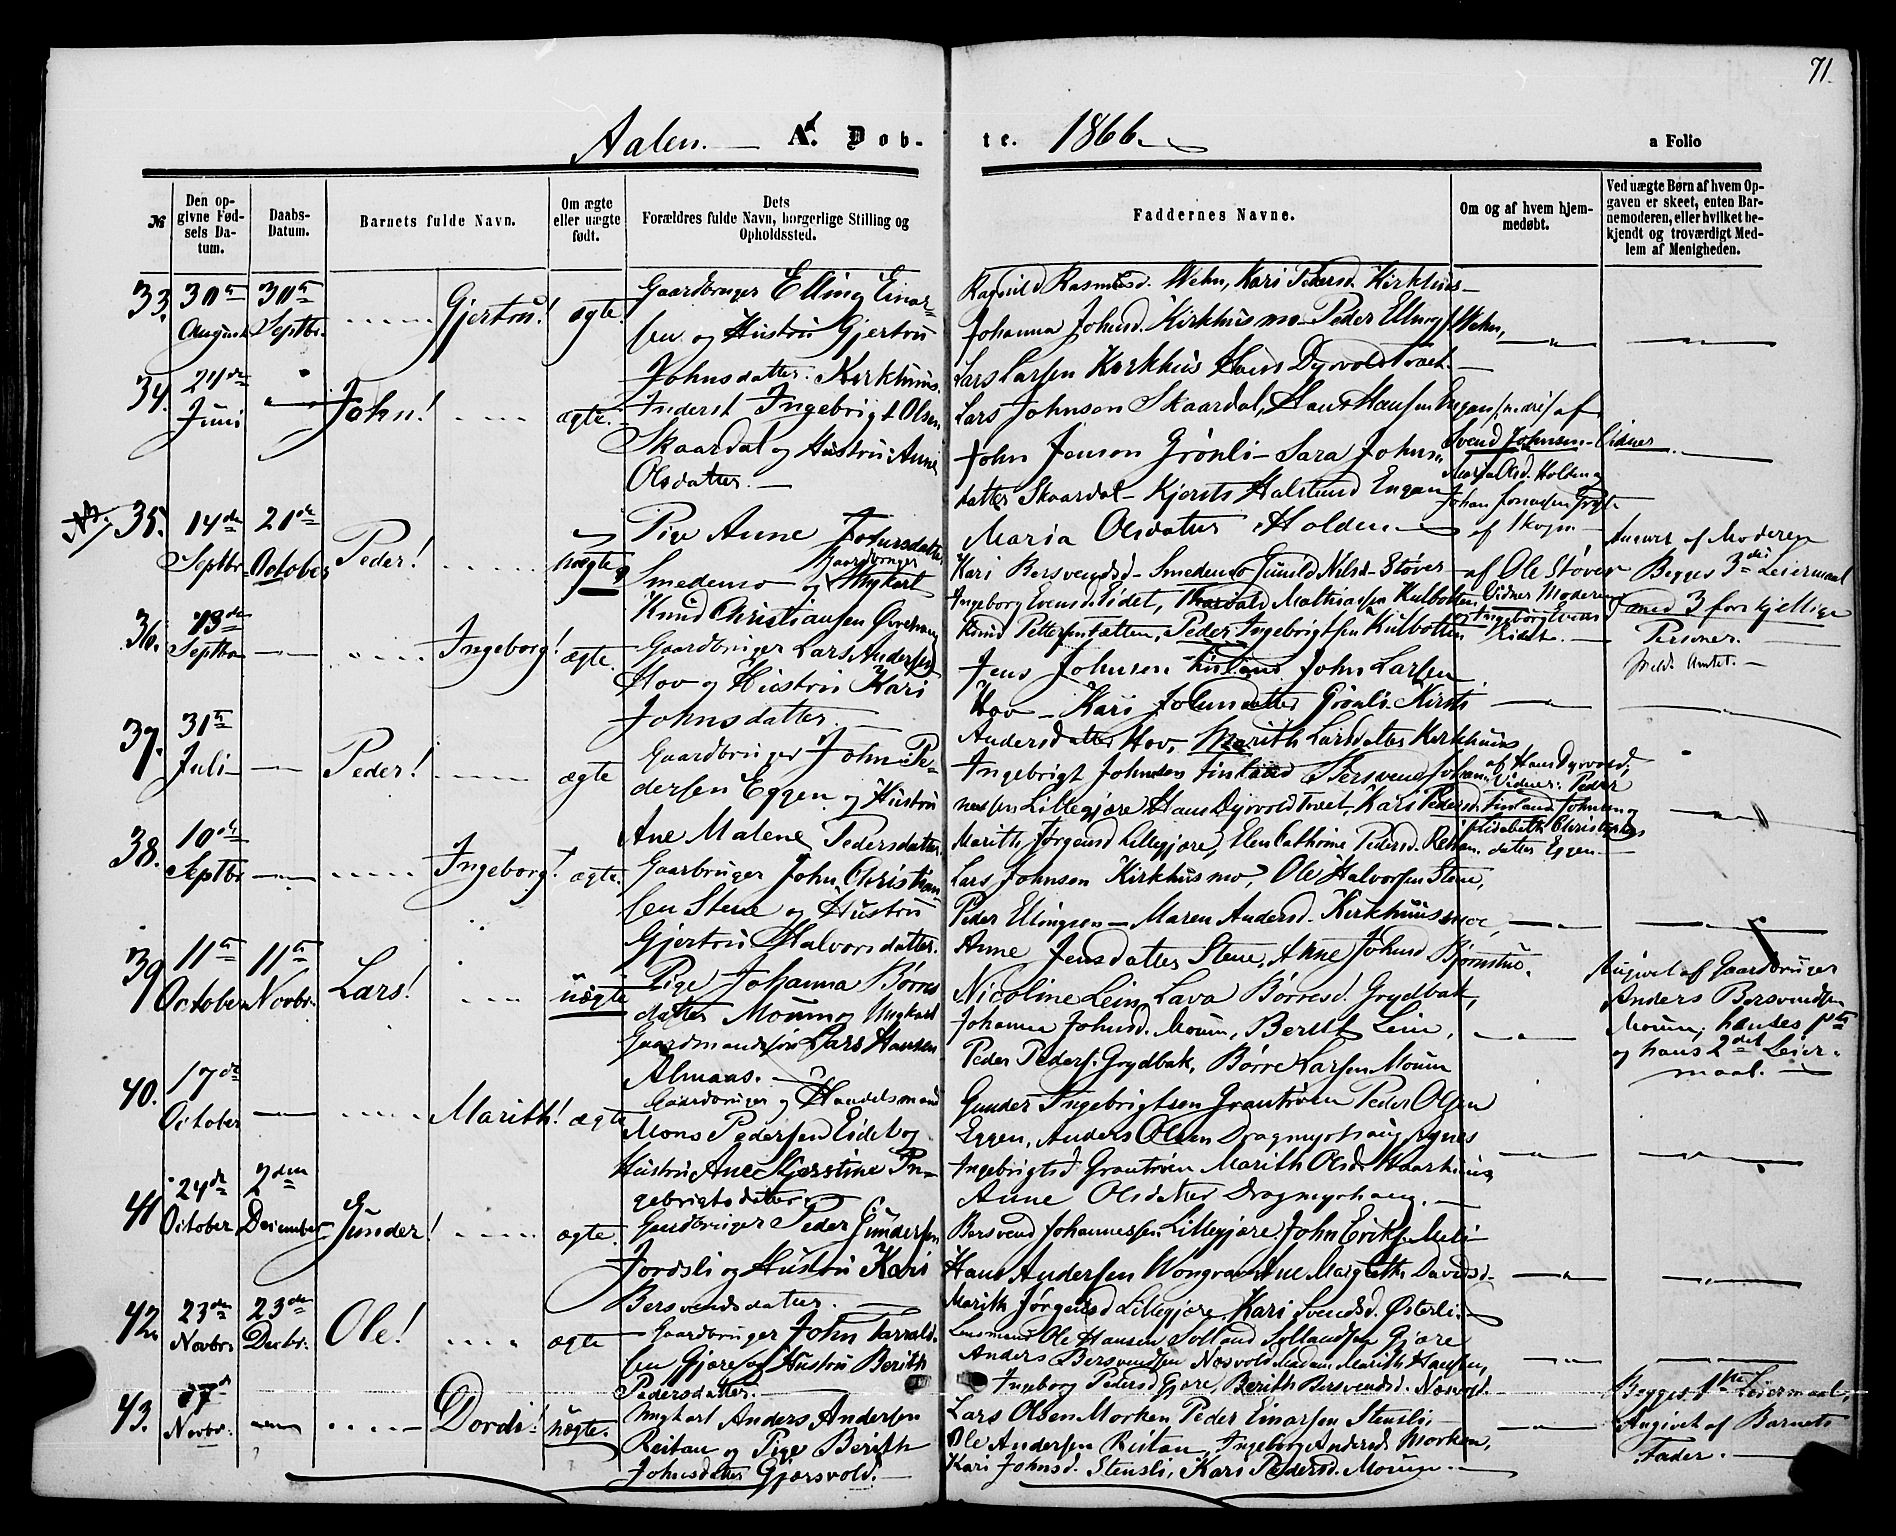 71.
Aalen. — A. Døb-te. 1866.
a Folio
№
Den op-givne Fød-sels Da-tum.
Daabs-Datum.
Barnets fulde Navn.
Om ægte eller uægte født.
Dets Forældres fulde Navn, borgerlige Stilling og Opholdssted.
Faddernes Navne.
Om og af hvem hjem-medøbt.
Ved uægte Børn af hvem Op-gaven er skeet, enten Bar-nemoderen, eller hvilket be-kjendt og troværdigt Med-lem af Menigheden.
33. 30te August 30te Septbr. Gjertru! ægte.
Gaardbruger Elling Einar-
sen og Hustru Gjertru
Johnsdatter Kirkhuus.
Ragnild Rasmusd. Wehn, Kari Pedersd. Kirkhuus
Johanna Johnsd. Kirkhusmo Peder Ellingf. Wehn,
Lars Larsen Kirkhus
34. 24de Juni John! ægte.
Inderst Ingebrigt Olsen
Skaardal og Hustru Anne
Olsdatter. —
Lars Johnsen Skaardal, Hans Hansen Engan
John Jensen Grønli — Sara Johns-
datter Skaardal — Kjersti Halstensd Engan
af
Svend Johnsen — Vidner
Maria Olsd. Holden og
af Skogn —
35. 14de Septbr 21de October Peder! uægte
Pige Anne Johnsdatter
Smedesmo og Gaardbruger Ungkarl
Knud Christiansen
Maria Olsdatter Holden
Kari Bersvendsd — Smedesmo Gunild Nilsd — Støver
Ingeborg Evensd. Eidet, Mathiasen Kulbotten
Knud Pettersen Tætten, Peder Ingebrigtsen Kulbotten
af Ole Støver
Vidner Moderen
og Ingeborg Evensd
Eidet. —
Angivet af Moderen
Begges 3die Leiermaal
med 3 forskjellige
Personer.
36. 13de Septbr — Ingeborg! ægte.
Gaardbruger Lars Andersen
Hov og Hustru Kari
Johnsdatter. —
Jens Johnsen Finland John Larsen
Hov — Kari Johnsdatter Grønli Kirsti
Andersdatter Hov, Marith Larsdatter Kirkhuus
37. 31te Juli — Peder! ægte
Gaardbruger John Pe-
dersen Eggen og Hustru
Ane Malene Pedersdatter.
Ingebrigt Johnsen Finland Bersvend Johan-
nessen Lillegjøre Hans Dyrvold Tvæt, Kari Pedersd. Finland
Marith Jørgensd Lillegjøre, Elen Cathrine Pedersd. Reitan.
af Hans Dyrvold,
Vidner: Peder
Johnsen og
Elisabeth Christophers
datter Eggen. —
38. 10de Septbr — Ingeborg! ægte.
Gaarbruger John Christian-
sen Stene og Hustru
Gjertru Halvorsdatter.
Lars Johnsen Kirkhusmo, Ole Halvorsen Stene,
Peder Ellingsen — Maren Andersd. Kirkhuusmoe,
Anne Jensdatter Stene, Anne Johnsd Bjørnstuo.
39. 11te October 11te Novbr. Lars! uægte
Pige Johanna Børres
datter Moum og Ungkarl
Gaardmandssøn Lars Hansen
Almaas. —
Nicoline Lein, Lava Børresd. Grydbak,
Johanna Johnsd. Moum, Berit Lein,
Peder Peders. Grydbak, Børre Larsen Moum
Angivet af Gaardbruger
Anders Bersvendsen
Moum; hendes 1ste
og hans 2det Leier-
maal. —
40. 17de October — Marith! ægte
Gaardbruger og Handelsmand
Mons Pedersen Eidet og
Hustru Ane Kjerstine In-
gebrigtsdatter.
Gunder Ingebrigtsen Grautrøen Peder Olsen
Eggen, Anders Olsen Dragmyrhaug Agnes
Ingebrigtsd. Grautrøen Marith Olsd.
Anne Olsdatter Dragmyrhaug. —
41 24de October 2den December Gunder! ægte.
Gardbruger Peder Gundersen
Jordsli og Hustru Kari
Bersvendsdatter. —
Bersvend Johannessen Lillegjøre, John Eriks. Meli
Hans Andersen Wongraven Ane Margreth. Davidsd.
Marith Jørgensd Lillegjøre, Kari Svendsd. Østerli.
42. 23de Novbr. 23de Decbr. Ole! ægte
Gaardbruger John Tarrald-
sen Gjøre og Hustru Berith
Pedersdatter. —
Lensmand Ole Hansen Solland Gjøre
Anders Bersvendsen Næsvold Madam Marith Hansen,
Ingeborg Pedersd Gjøre, Berith Bersvendsd. Næsvold.
43. Novbr. — Dordi! uægte.
Ungkarl Anders Andersen
Reitan og Pige Berith
Johnsdatter Gjørsvold. —
Lars Olsen Morken Peder Einarsen Stensli, —
Ole Andersen Reitan, Ingeborg Andersd. Morken,
Kari Johnsd. Stensli, Kari Pedersd. Moum. —
Begges 1ste Leiermaal,
Angivet af Barnets
Fader. —